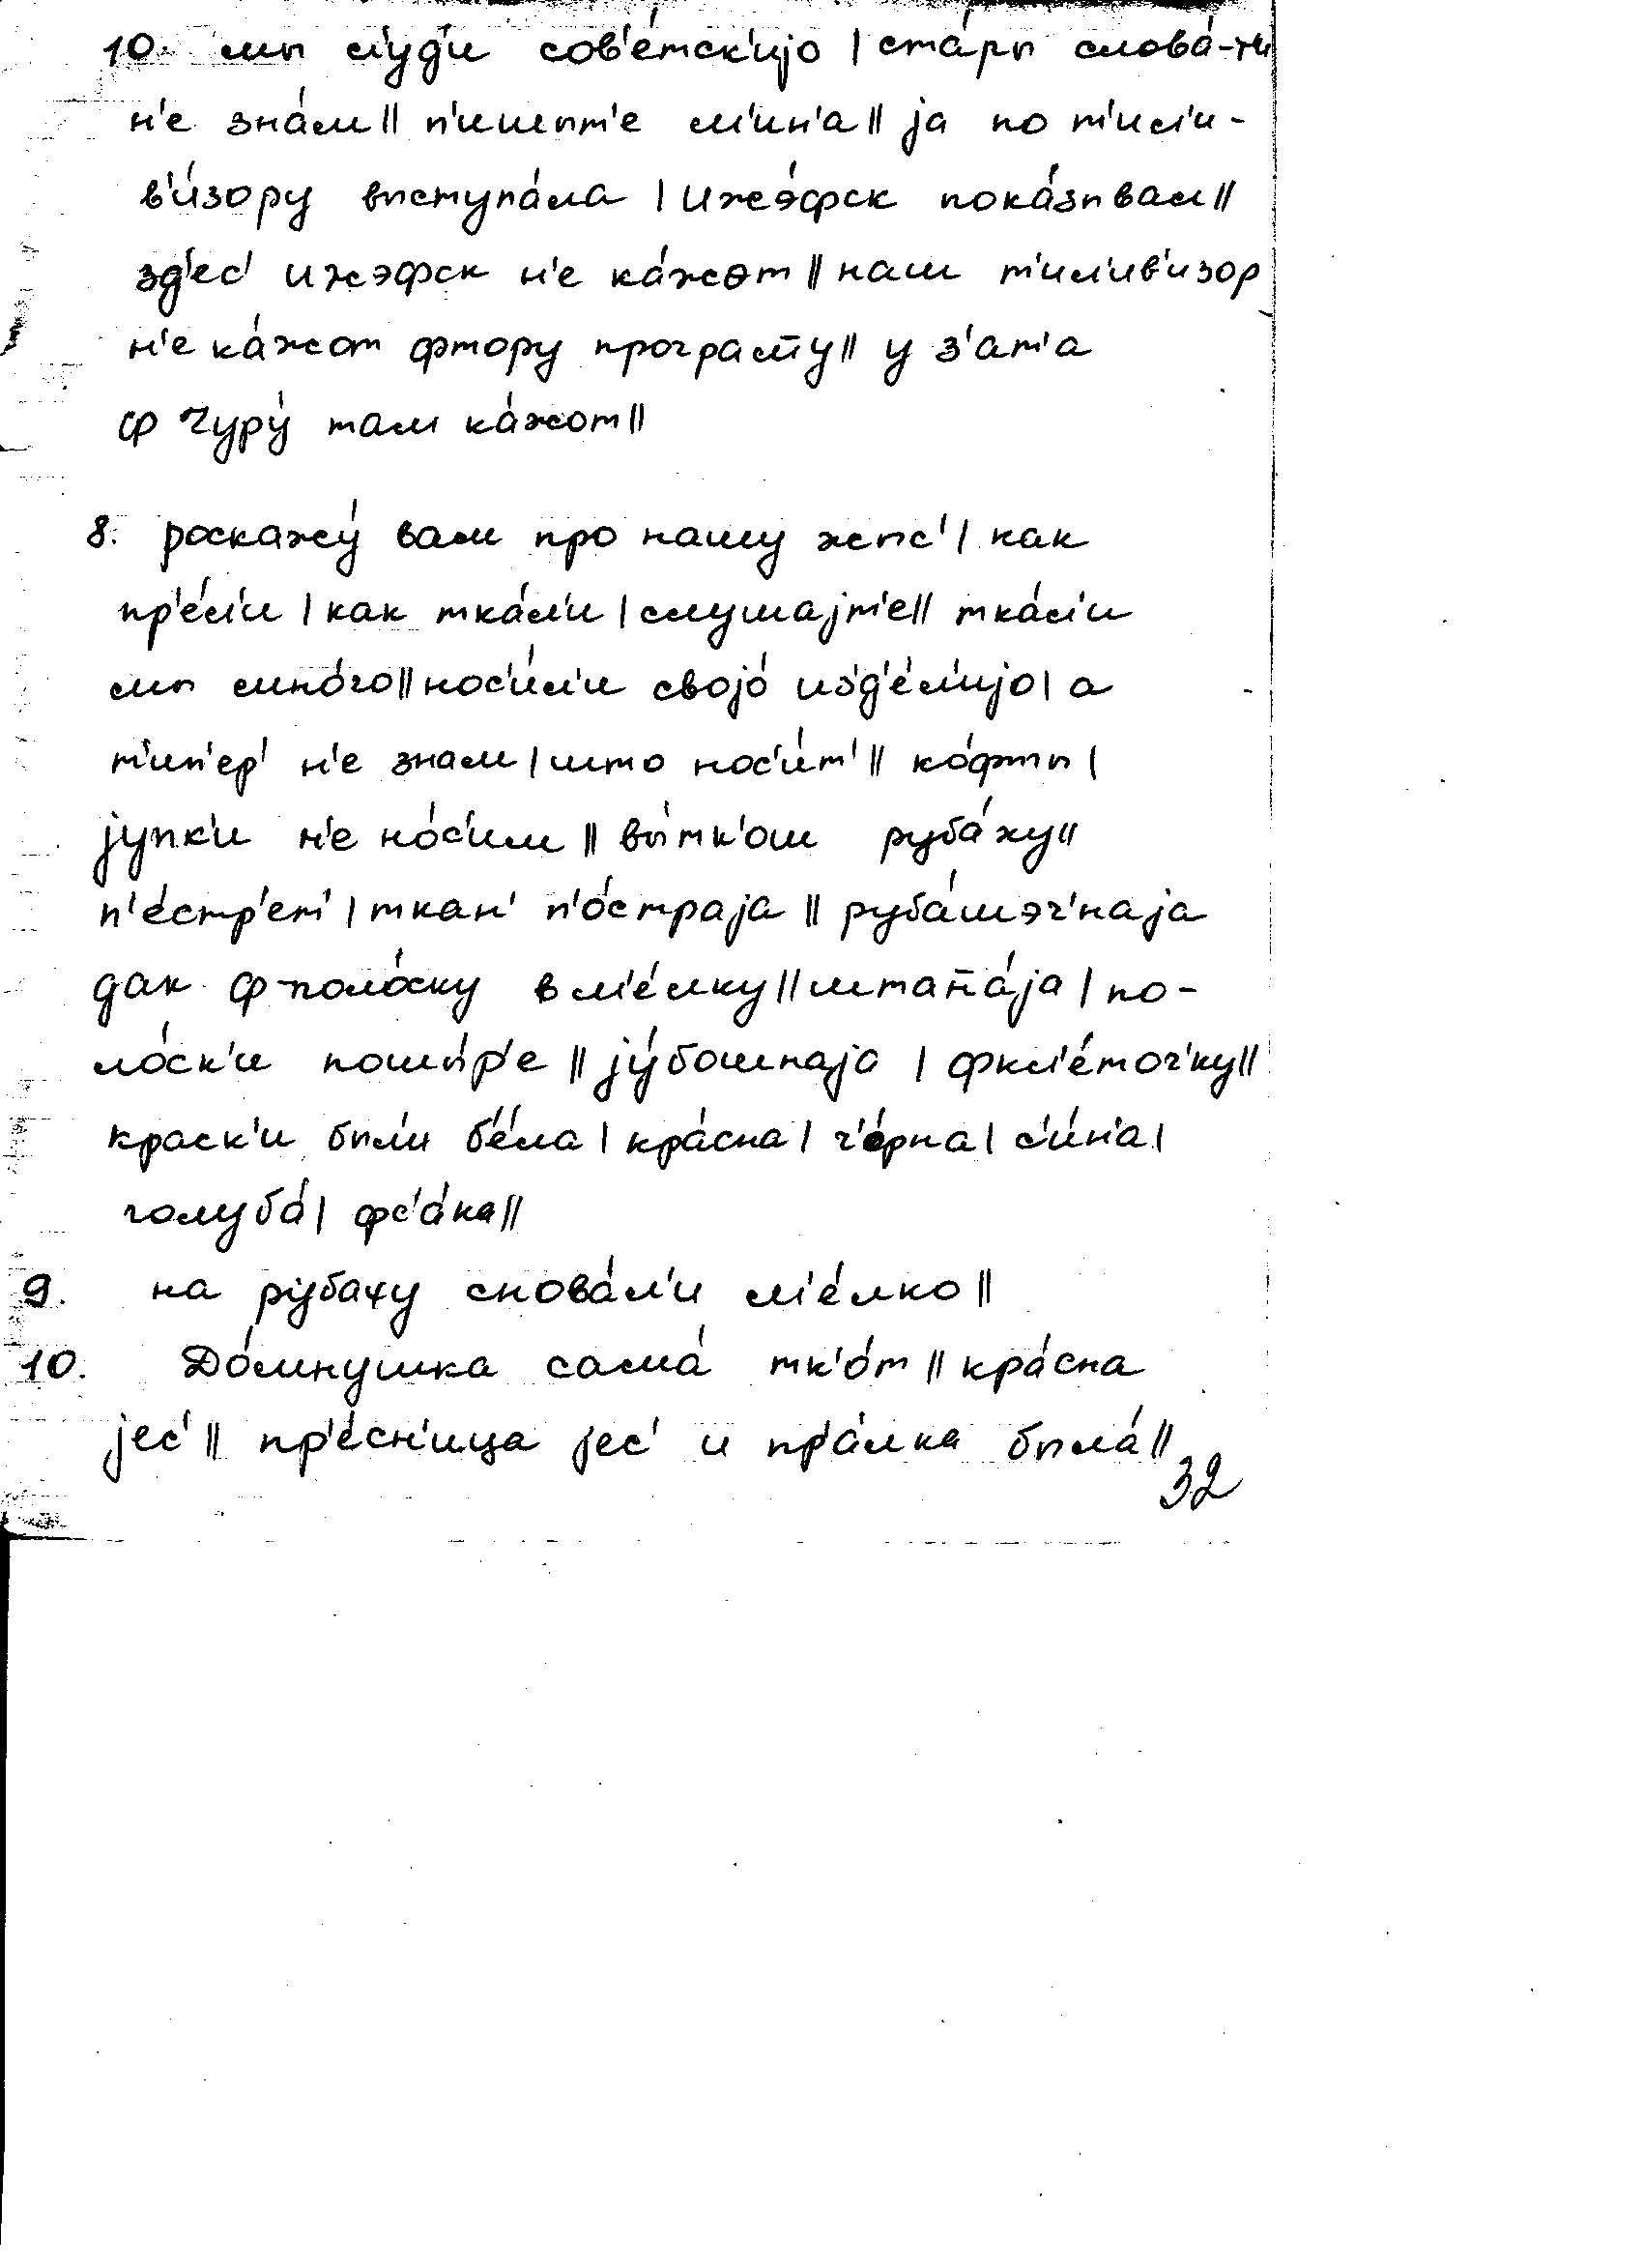 10. мы л'у́д'и сов'е́тск'ијо | ста́ры слова́-ти
н'е зна́м || п'ишыт'е м'ин'а || ја по т'ил'и-
в'и́зору выступа́ла | Ижэ́фск пока́зывал ||
зд'ес' ижэфск н'е ка́жот || наш т'ил'ив'изор
н'е ка́жот фтору програм̄у || у з'ат'а
ф Чуру́ там ка́жот ||
8. роскажу́ вам про нашу жыс' | как
пр'е́л'и | как тка́л'и | слушајт'е || тка́л'и
мы мно́го || нос'и́л'и својо́ из'д'е́л'ијо | а
т'ип'ер' н'е знам | што нос'и́т' || ко́фты |
јупк'и н'е но́с'им || вы́тк'ош руба́ху ||
п'е́стр'ет' | ткан' п'о́страја || руба́шэч'наја
дак ф поло́ску в м'е́лку || штан̄а́ја | по-
ло́ск'и пошы́р'е || јубошнаја | фкл'е́точ'ку ||
краск'и были б'е́ла | кра́сна | ч'о́рна | с'и́н'а |
голуба́ | фс'а́ка ||
9. на рубаху снова́л'и м'е́лко ||
10. До́мнушка сама́ тк'о́т || кра́сна
јес' || пр'е́сн'ица јес' и пр'а́лка была́ ||
32